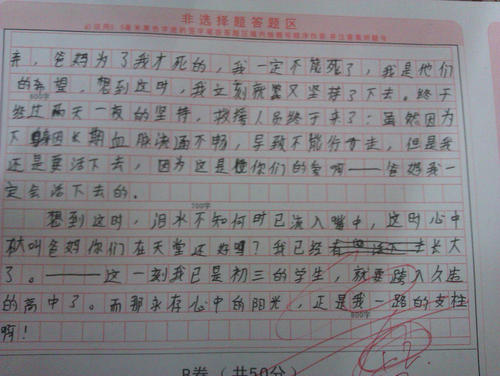 非选择题答题区
弃，爸妈为了我才死的，我一定不能死了，我是他们
的希望，想到这时，我立刻就又坚持了下去。终于
600字
经过两天一夜的坚持，救援人员终于来了；虽然因为
下长期血脉流通不畅，导致不能行走，但是我
还是要活下去，因为这是你们的爱啊——爸妈我一
定会活下去的。
700字
想到这时，泪水不知何时已流入嘴中，这时心中
呐叫爸妈你们在天堂还好吗？我已经长大
了。——这一刻我已是初三的学生，就要跨入久违
的高中了。而那永存心中的阳光，正是我一路的支柱
800字
啊！
B卷（共50分）